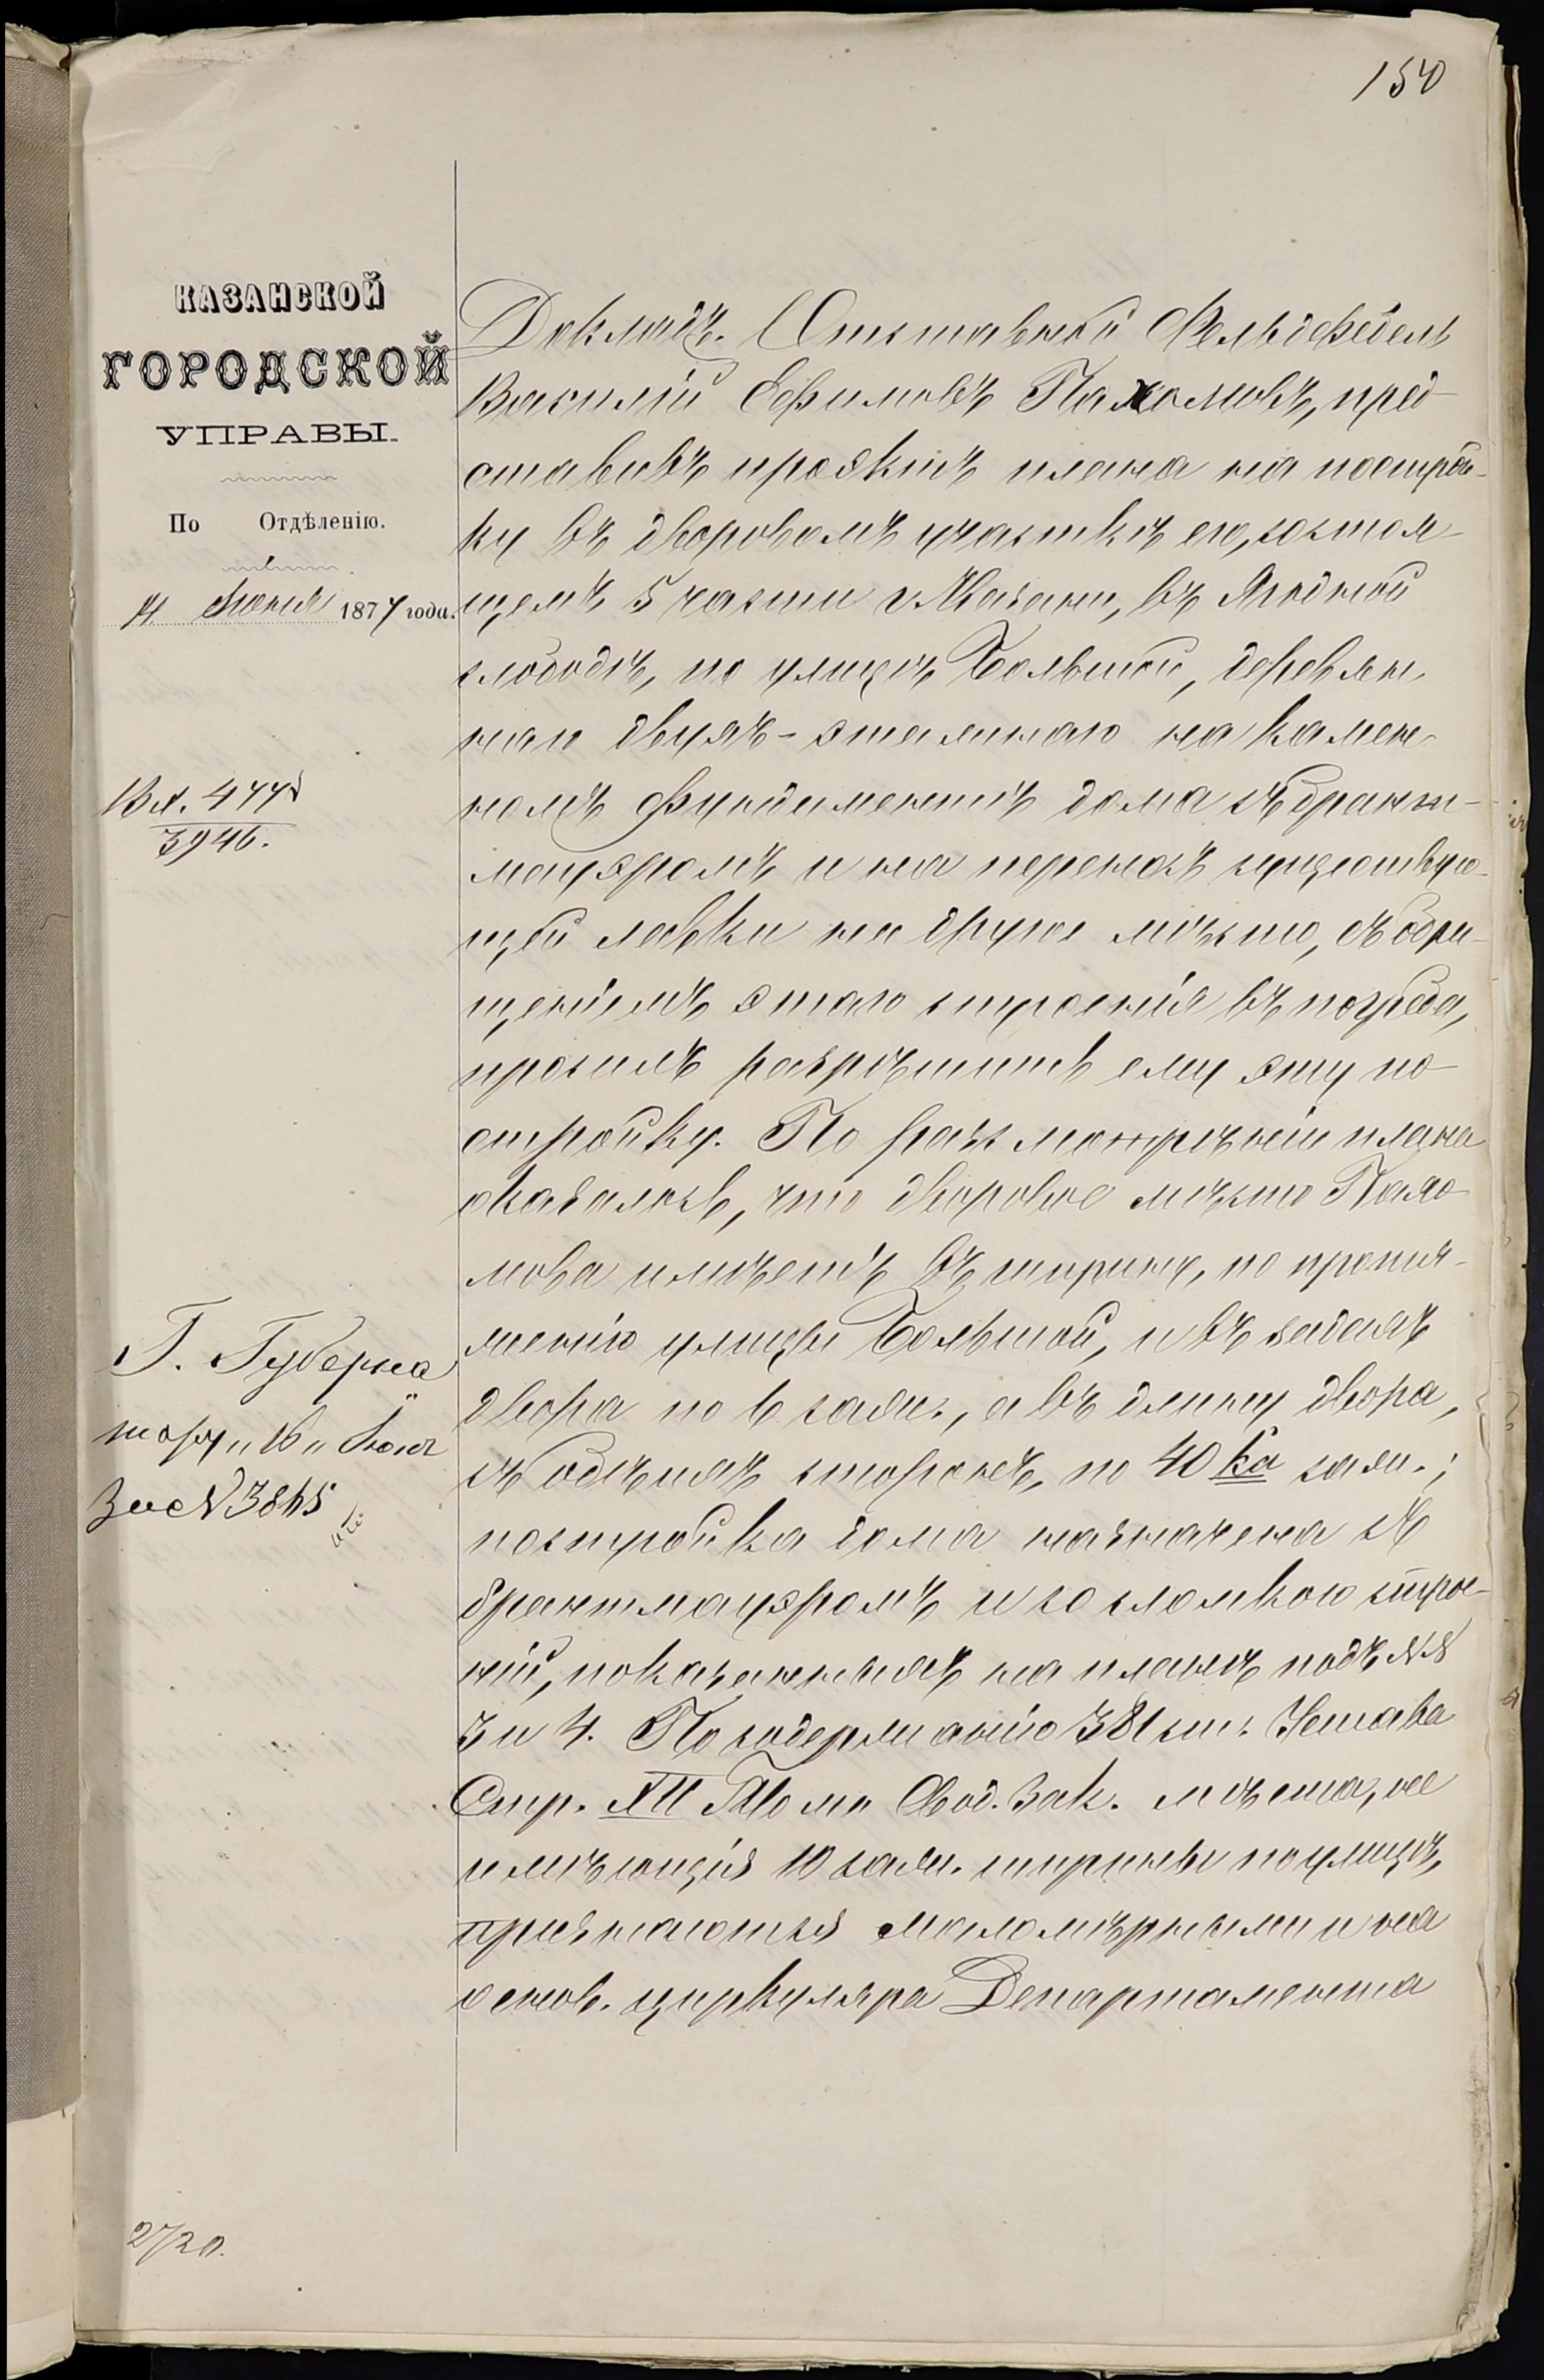 150
КАЗАНСКОЙ
ГОРОДСКОЙ
УПРАВЫ.
По Отдѣленію.
14 Іюня 1877 года.
Вх. 4778
3946.
Г. Губерна
тору „16„ Іюня
За № 3865
2720.
Докладъ. Отставной Фельдфебель
Василій Ефимовъ Пахомовъ, пред-
ставивъ проэктъ плана на построй-
ку въ дворовомъ участкѣ его, состоя-
щемъ 5 части г. Казани, въ Ягодной
слободѣ, по улицѣ Большой, деревян-
наго двухъ-этажнаго на камен-
номъ фундаментѣ дома съ брант-
мауэромъ и на переносъ существую-
щей лавки на другое мѣсто, съ обра-
щеніемъ этаго строенія въ погреба,
просилъ разрѣшить ему эту по-
стройку. По разсмотрѣніи плана
оказалось, что дворовое мѣсто Пахо-
мова имѣетъ въ ширину, по протя-
женію улицы Большой, и въ задахъ
двора по 6 саж., а въ длину двора,
съ обѣихъ сторонъ, по 40 ка саж.;
постройка дома назначена съ
брантмауэромъ и со сломкою строе-
ній, показанныхъ на планѣ подъ №№
3 и 4. По содержанію 381 ст. Устава
Стр. XII Тома Свод. Зак. мѣста, не
имѣющія 10 саж. ширины по улицѣ,
признаются маломѣрными и на
основ. циркуляра Департамента